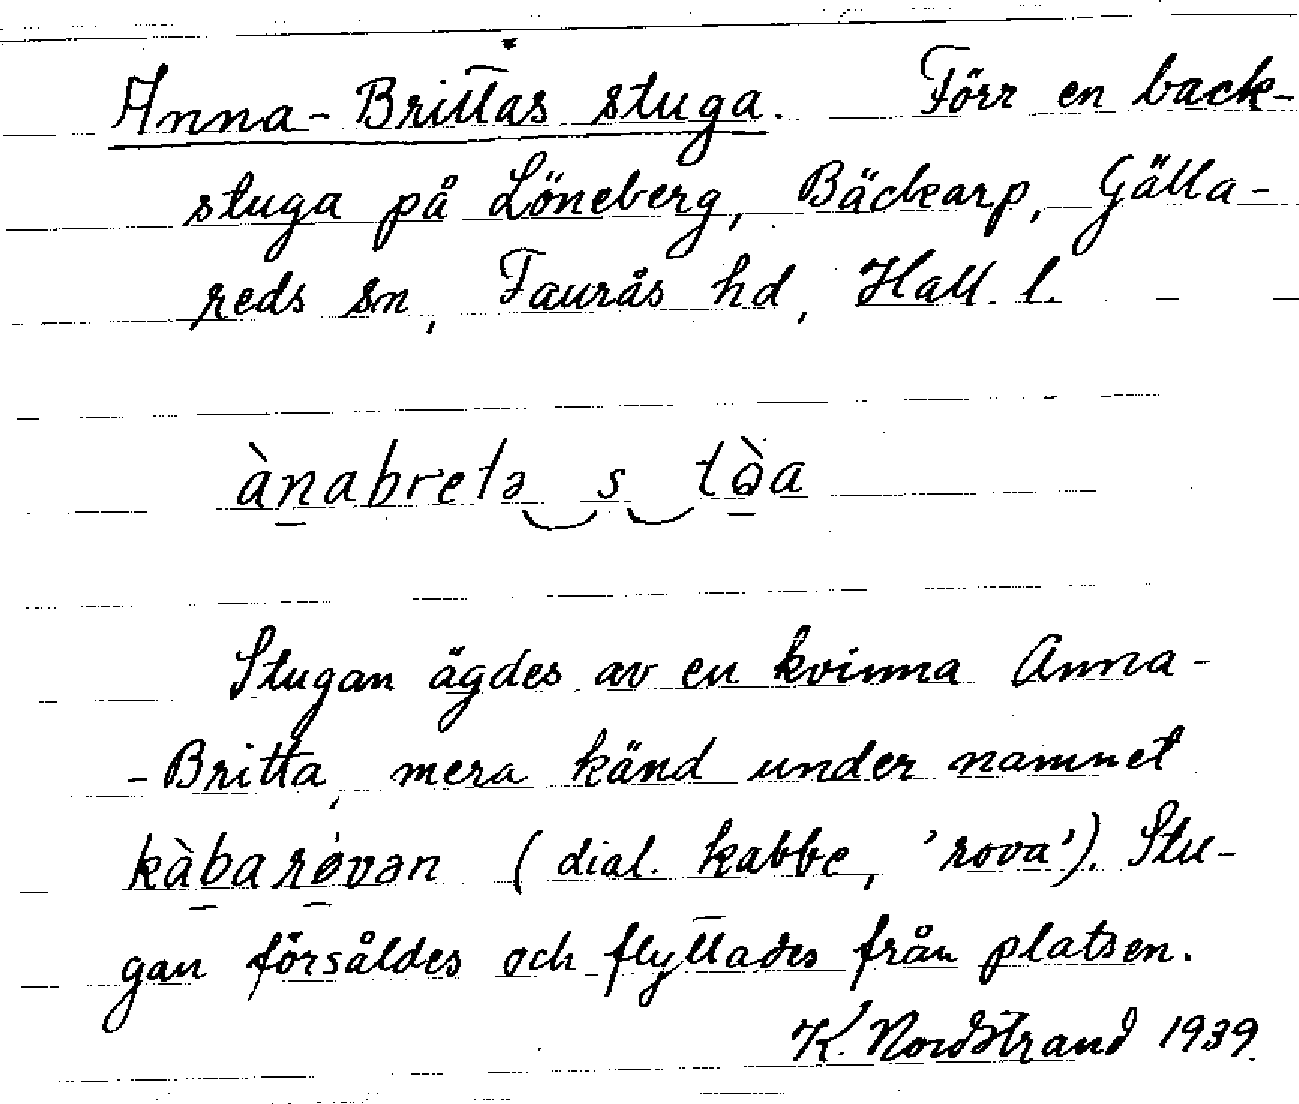 Anna-Brittas stuga. Förr en back-
stuga på Löneberg, Bäckarp, Gälla-
reds sn, Faurås hd, Hall. l.
ànabretə s tòa
Stugan ägdes av en kvinna Anna-
-Britta, mera känd under namnet
kàbarøvən (dial. kabbe, 'rova'). Stu-
gan försåldes och flyttades från platsen.
K. Nordstrand 1939.